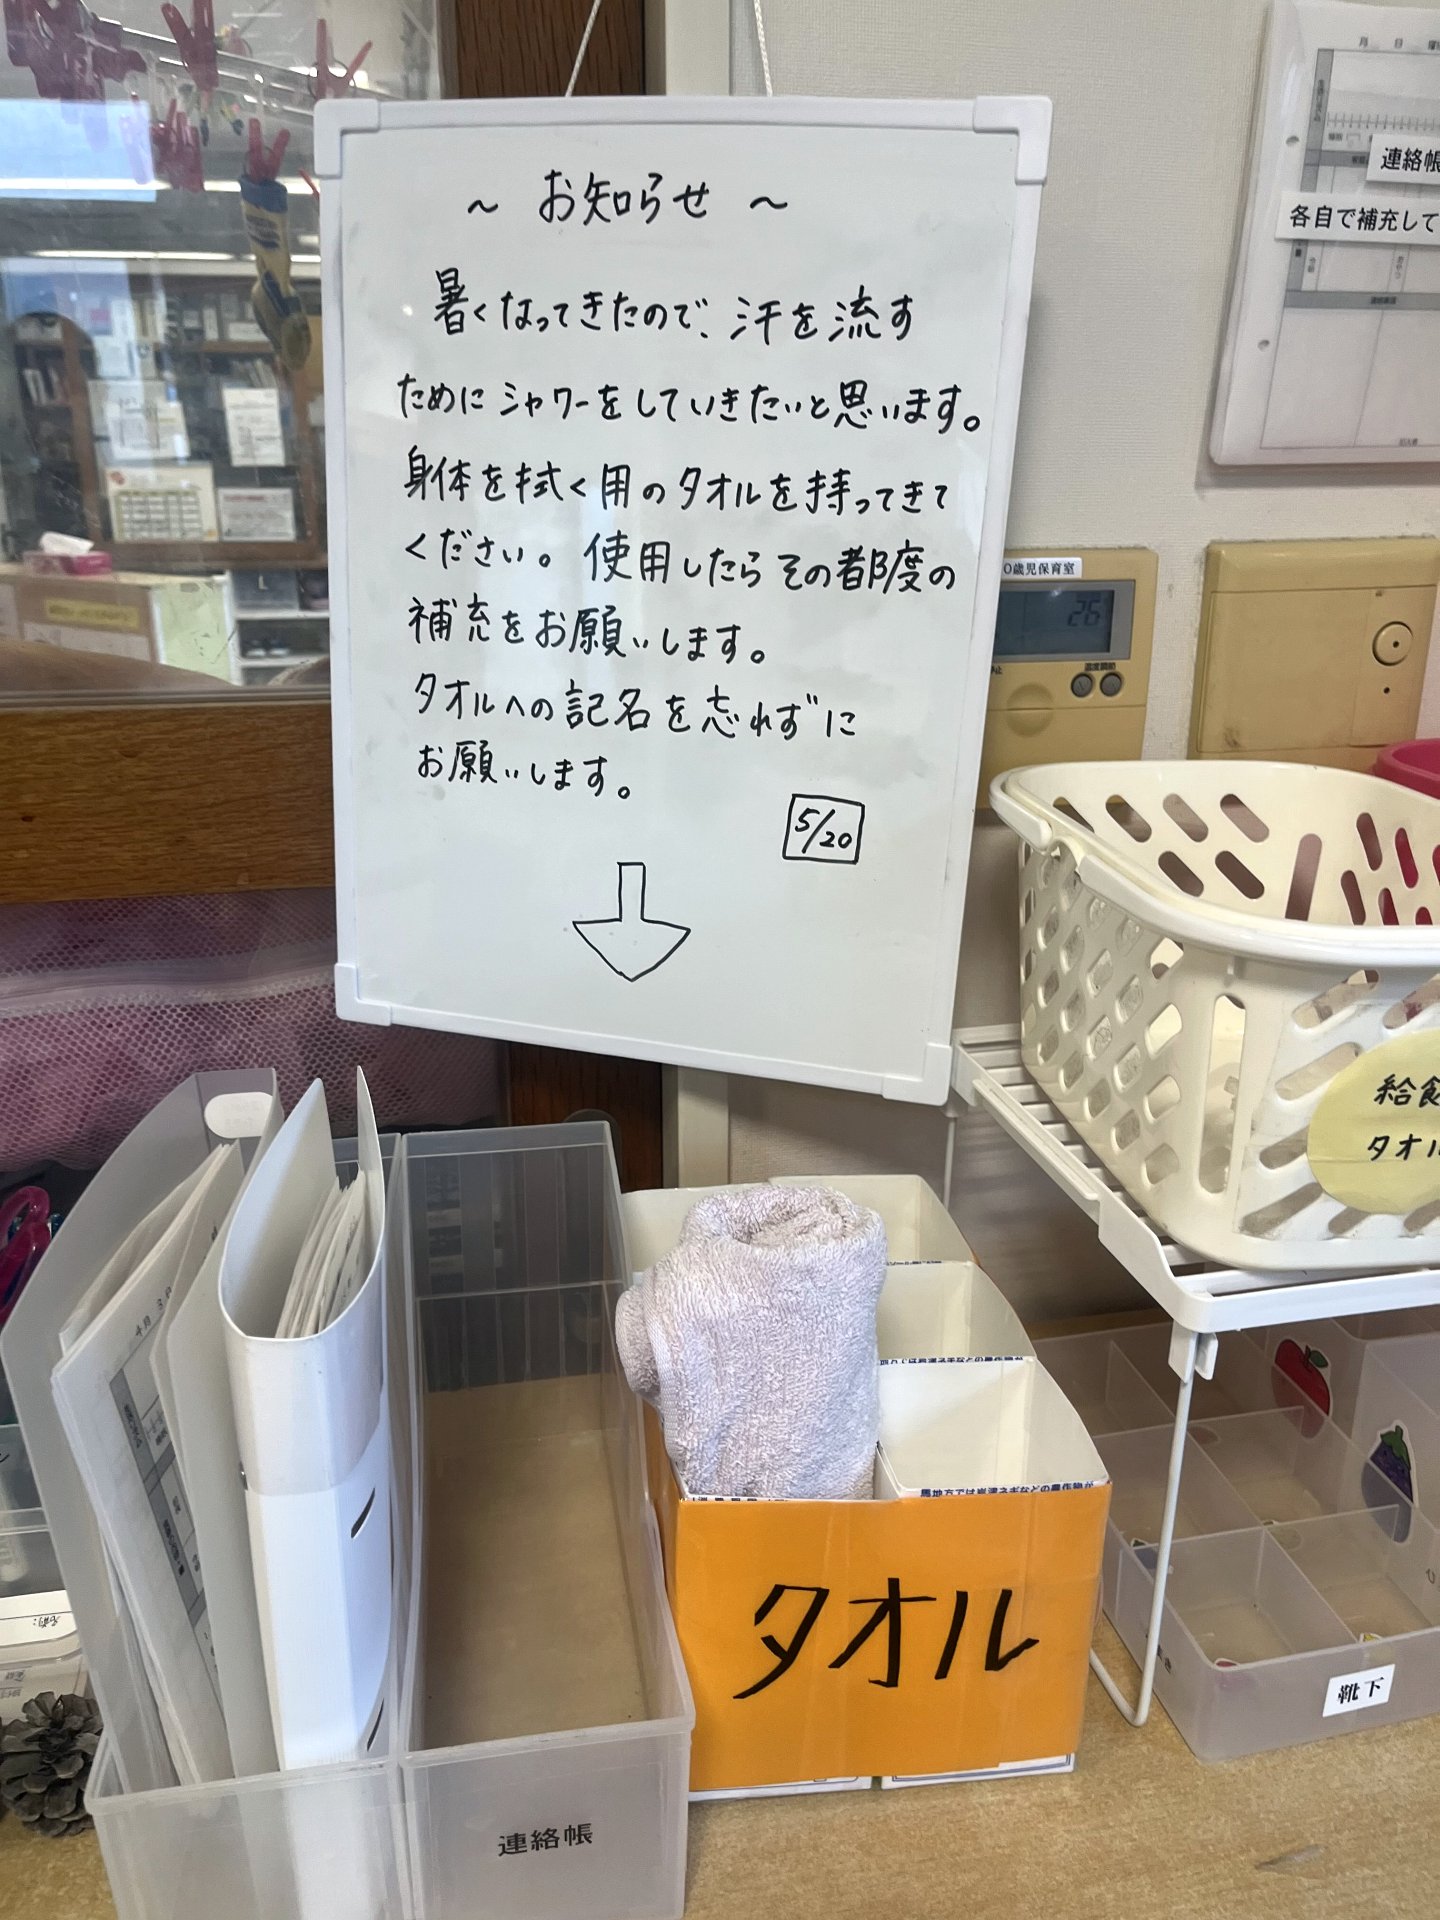 ~ お知らせ ~
暑くなってきたので、汗を流す
ためにシャワーをしていきたいと思います。
身体を拭く用のタオルを持ってきて
ください。使用したらその都度の
補充をお願いします。
タオルへの記名を忘れずに
お願いします。
5/20
月 日
連絡帳
各自で補充して
0歳児保育室
26
温度調節
給食
タオル
タオル
連絡帳
靴下
馬地方では
などの農作物が